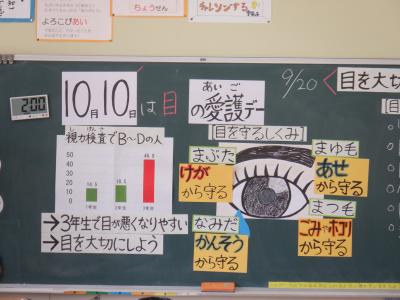 よろこびあい
ちょうせん
チャレンジする
2:00
10月10日は目の愛護デー
あいご
9/20
目を大切
視力検査でB～Dの人
しりょくけんさ
50
40
30
20
10
0
1年生
2年生
3年生
→3年生で目が悪くなりやすい
→目を大切にしよう
[目を守るしくみ]
まぶた
けが
から守る
まゆ毛
あせ
から守る
なみだ
かんそう
から守る
まつ毛
ごみやホコリ
から守る